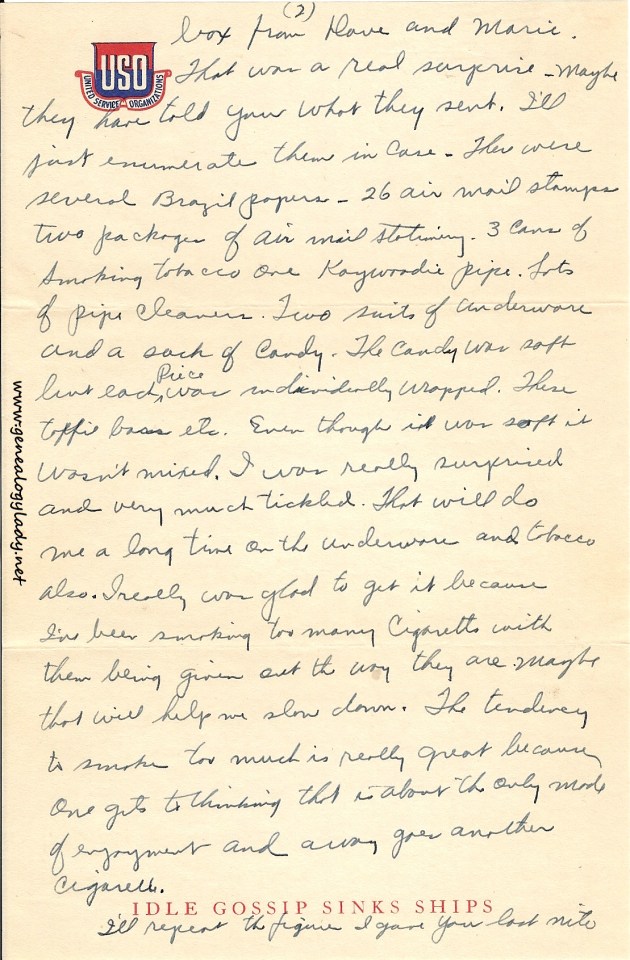 (2)
box from Dave and Marie.
USO
UNITED SERVICE ORGANIZATIONS
That was a real surprise - Maybe
they have told you what they sent. I'll
just enumerate them in case - Ther were
several Brazil papers - 26 air mail stamps
two packages of air mail stationery. 3 cans of
smoking tobacco one Kaywoodie pipe. Lots
of pipe cleaners. Two suits of underware
and a sack of candy. The candy was soft
but each Piece was individually wrapped. These
toffie bars etc. Even though it was soft it
wasn't mixed. I was really surprised
and very much tickled. That will do
me a long time on the underware and tobacco
also. I really was glad to get it because
I've been smoking too many Cigaretts with
them being given out the way they are. Maybe
that will help me slow down. The tendency
to smoke too much is really great because
one gets to thinking that is about the only mode
of enjoyment and away goes another
Cigarett.
IDLE GOSSIP SINKS SHIPS
I'll repeat the figure I gave you last nite
www.genealogylady.net